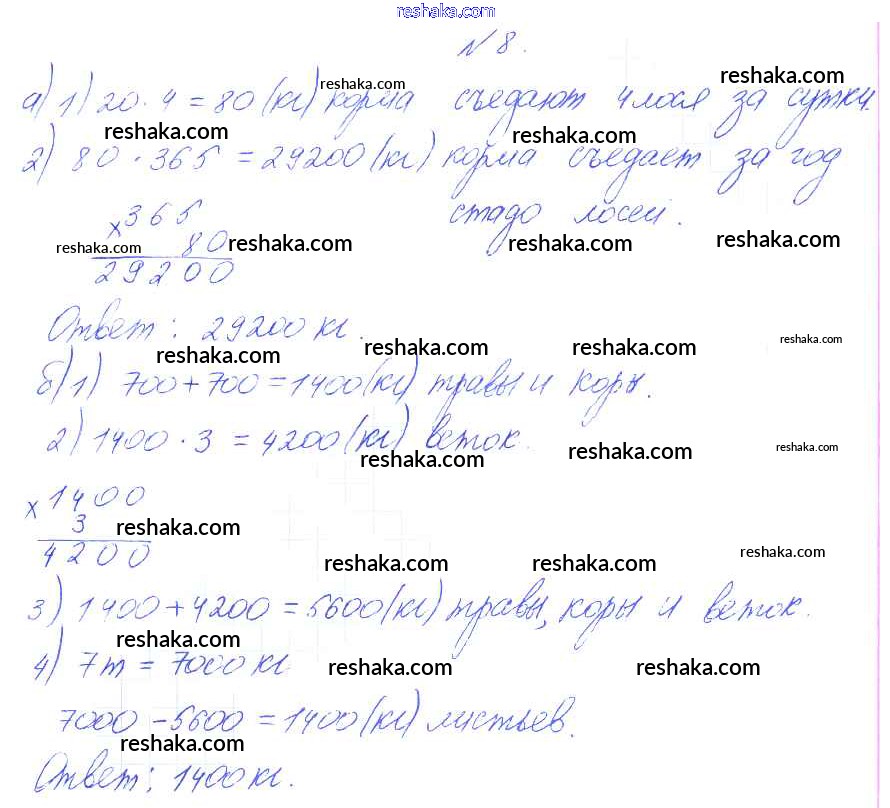 reshaka.com
N 8.
а) 1) 20 · 4 = 80 (кг) корма съедают 4 лося за сутки.
reshaka.com reshaka.com
reshaka.com reshaka.com
2) 80 · 365 = 29200 (кг) корма съедает за год
стадо лосей.
× 365
80
reshaka.com reshaka.com reshaka.com reshaka.com
29200
Ответ: 29200 кг.
reshaka.com reshaka.com reshaka.com reshaka.com
б) 1) 700 + 700 = 1400 (кг) травы и коры.
2) 1400 · 3 = 4200 (кг) веток.
reshaka.com reshaka.com reshaka.com
× 1400
3
reshaka.com
4200
reshaka.com reshaka.com reshaka.com
3) 1400 + 4200 = 5600 (кг) травы, коры и веток.
reshaka.com
4) 7 т = 7000 кг
reshaka.com reshaka.com
7000 – 5600 = 1400 (кг) листьев.
reshaka.com
Ответ: 1400 кг.